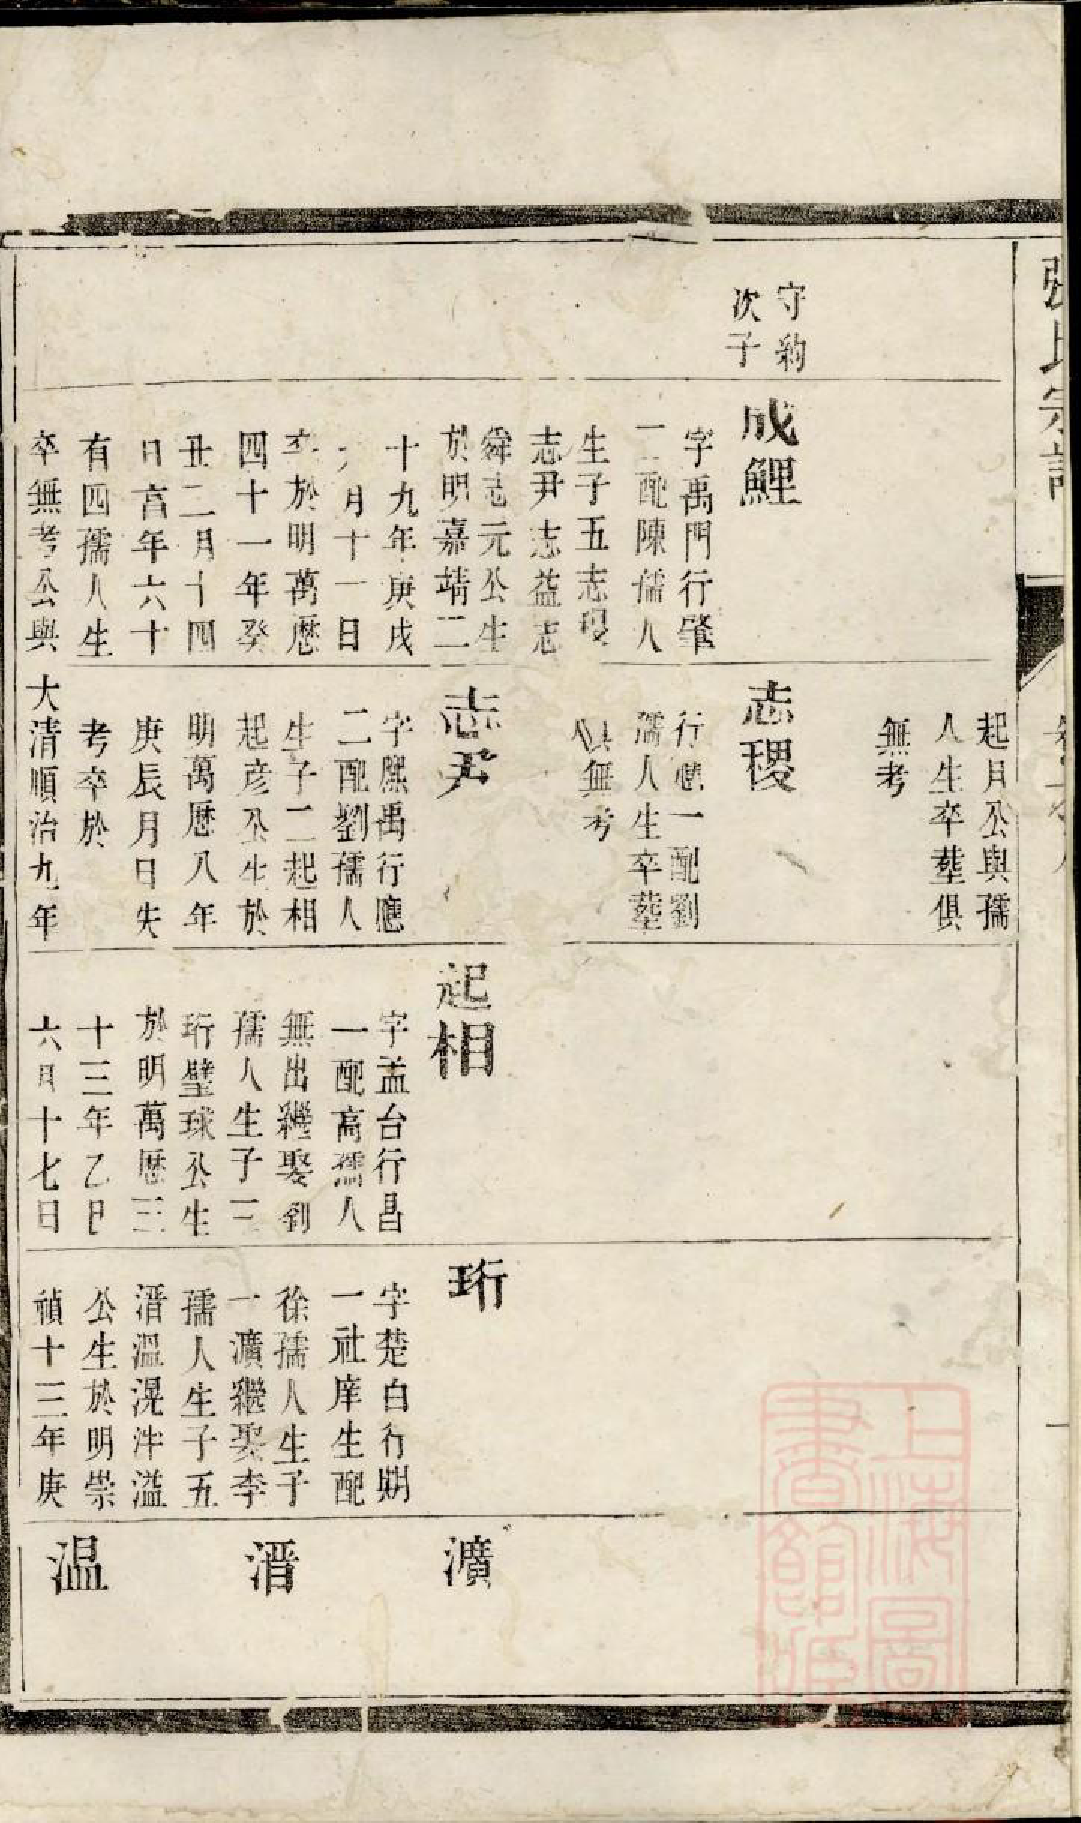 張氏宗譜
守約
次子
成鯉
字禹門行肇
二配陳孺人
生子五志稷
志尹志益志
舜志元公生
於明嘉靖二
十九年庚戌
月十一日
卒於明萬歷
四十一年癸
丑二月十四
日享年六十
有四孺人生
卒無考公與
起月公與孺
人生卒塟俱
無考
志稷
行應一配劉
孺人生卒塟
俱無考
志尹
字熙禹行應
二配劉孺人
生子二起相
起彦公生於
明萬歷八年
庚辰月日失
考卒於
大清順治九年
起相
字盖台行昌
一配高孺人
無出繼娶劉
孺人生子三
珩璧球公生
於明萬歷三
十三年乙巳
六月十七日
珩
字楚白行期
一社庠生配
徐孺人生子
一濵繼娶李
孺人生子五
溍溫滉泮溢
公生於明崇
禎十三年庚
濵
溍
温
上海圖
書館藏